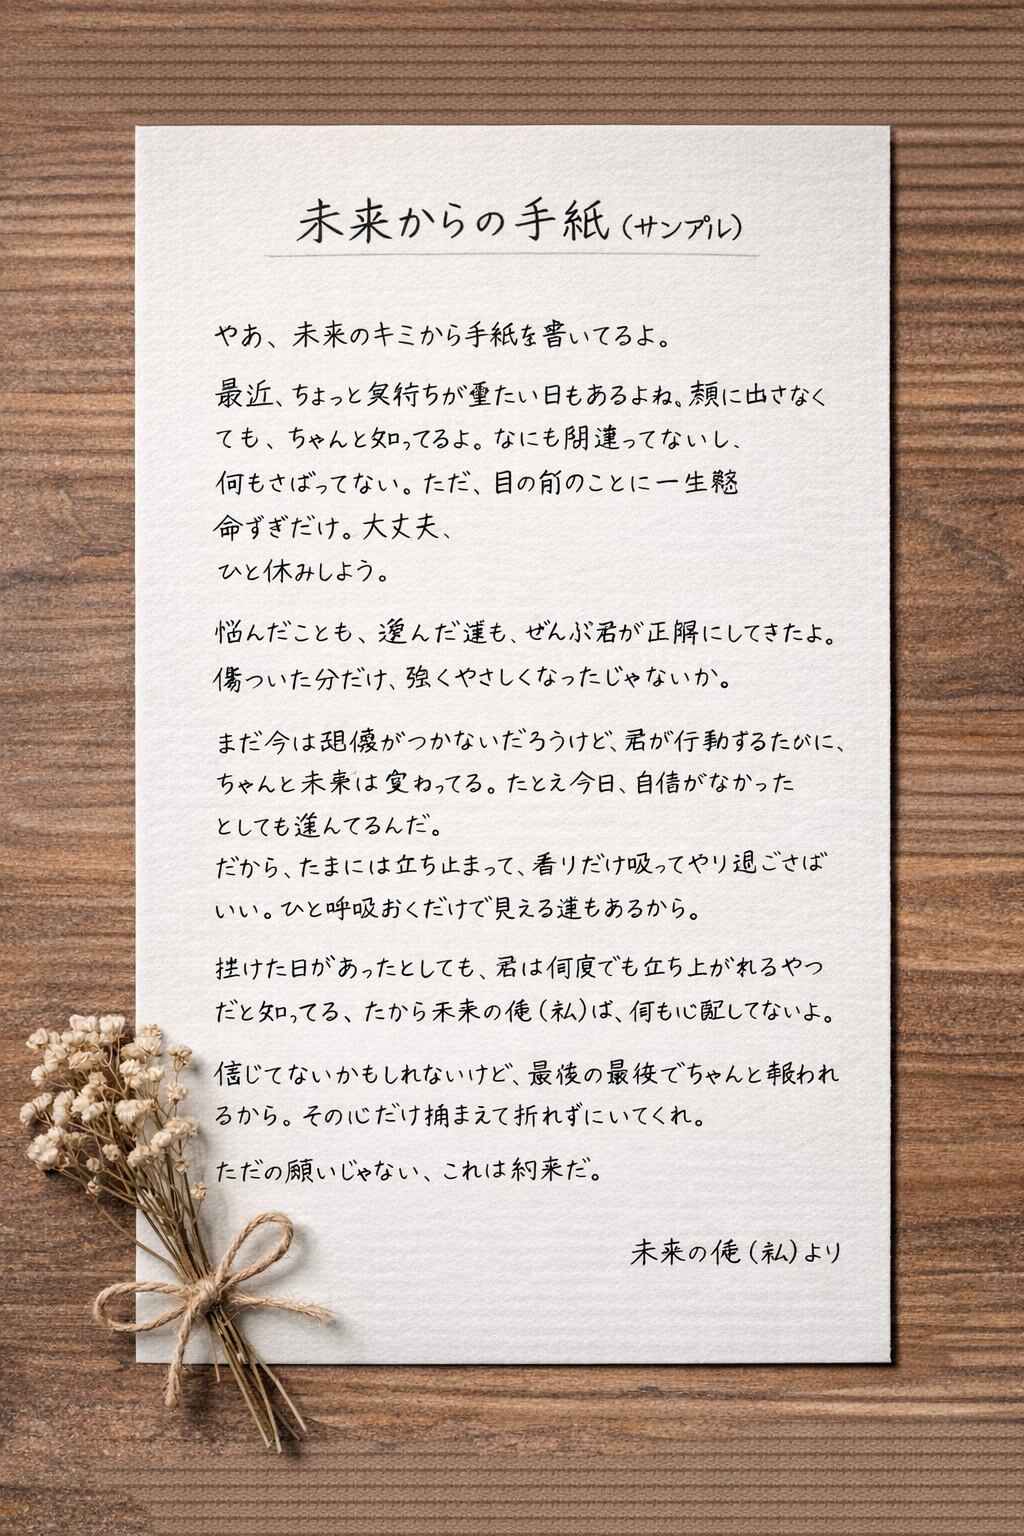 未来からの手紙(サンプル)
やあ、未来のキミから手紙を書いてるよ。
最近、ちょっと気持ちが重たい日もあるよね。顔に出さなく
ても、ちゃんと知ってるよ。なにも間違ってないし、
何もさばってない。ただ、目の前のことに一生懸
命ずぎだけ。大丈夫、
ひと休みしよう。
悩んだことも、選んだ道も、ぜんぶ君が正解にしてきたよ。
傷ついた分だけ、強くやさしくなったじゃないか。
まだ今は想像がつかないだろうけど、君が行動するたびに、
ちゃんと未来は変わってる。たとえ今日、自信がなかった
としても進んてるんだ。
だから、たまには立ち止まって、香りだけ吸ってやり過ごさば
いい。ひと呼吸おくだけで見える道もあるから。
挫けた日があったとしても、君は何度でも立ち上がれるやつ
だと知ってる、たから未来の俺(私)ば、何も心配してないよ。
信じてないかもしれないけど、最後の最後でちゃんと報われ
るから。その心だけ捕まえて折れずにいてくれ。
ただの願いじゃない、これは約束だ。
未来の俺(私)より